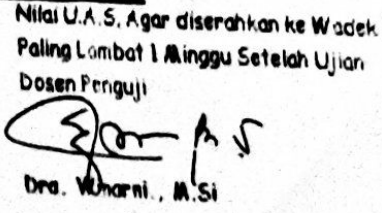 Nilai U.A.S. Agar diserahkan ke Wadek
Paling Lambat 1 Minggu Setelah Ujian
Dosen Penguji
Dra. M.Si